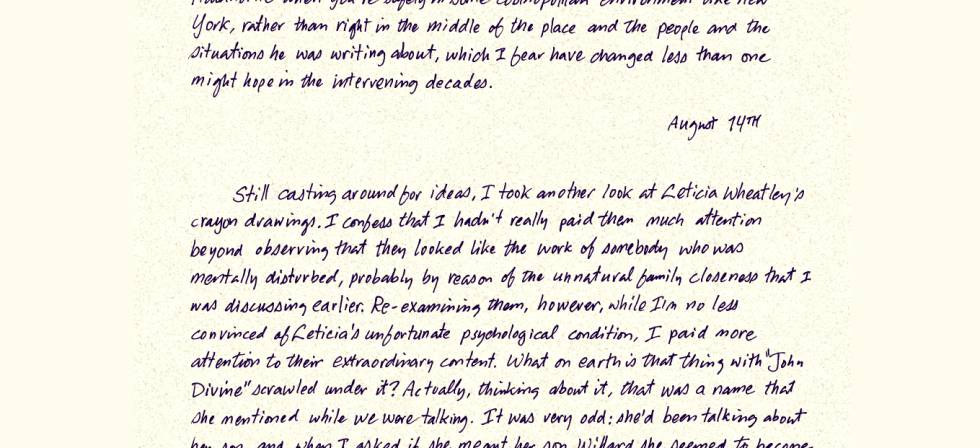 when you're safely in some cosmopolitan environment like New
York, rather than right in the middle of the place and the people and the
situations he was writing about, which I fear have changed less than one
might hope in the intervening decades.
August 14TH
Still casting around for ideas, I took another look at Leticia Wheatley's
crayon drawings. I confess that I hadn't really paid them much attention
beyond observing that they looked like the work of somebody who was
mentally disturbed, probably by reason of the unnatural family closeness that I
was discussing earlier. Re-examining them, however, while I'm no less
convinced of Leticia's unfortunate psychological condition, I paid more
attention to their extraordinary content. What on earth is that thing with "John
Divine" scrawled under it? Actually, thinking about it, that was a name that
she mentioned while we were talking. It was very odd: she'd been talking about
her son, and when I asked if she meant her son Willard she seemed to become